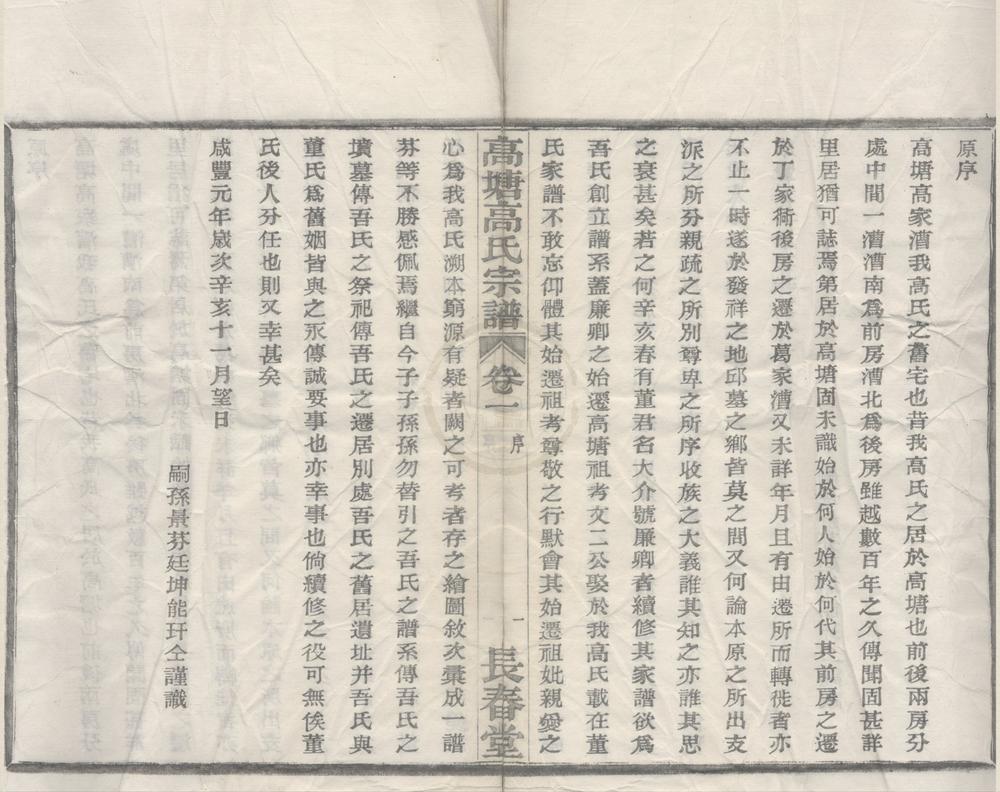 原序
高塘高家漕我高氏之舊宅也昔我高氏之居於高塘也前後兩房分
處中間一漕漕南為前房漕北為後房雖越數百年之久傳聞固甚詳
里居猶可誌焉第居於高塘固未識始於何人始於何代其前房之遷
於丁家衕後房之遷於葛家漕又未詳年月且有由遷所而轉徙者亦
不止一時遂於發祥之地邱墓之鄉皆莫之問又何論本原之所出支
派之所分親疏之所別尊卑之所序收族之大義誰其知之亦誰其思
之衰甚矣若之何辛亥春有董君名大介號廉卿者續修其家譜欲為
吾氏創立譜系蓋廉卿之始遷高塘祖考文二公娶於我高氏載在董
氏家譜不敢忘仰體其始遷祖考尊敬之行默會其始遷祖妣親愛之
高塘高氏宗譜
卷一
序
一
長春堂
心為我高氏溯本窮源有疑者闕之可考者存之繪圖敘次彙成一譜
芬等不勝感佩焉繼自今子子孫孫勿替引之吾氏之譜系傳吾氏之
墳墓傳吾氏之祭祀傳吾氏之遷居別處吾氏之舊居遺址并吾氏與
董氏為舊姻皆與之永傳誠要事也亦幸事也倘續修之役可無俟董
氏後人分任也則又幸甚矣
咸豐元年歲次辛亥十一月望日
嗣孫景芬廷坤能玕仝謹識